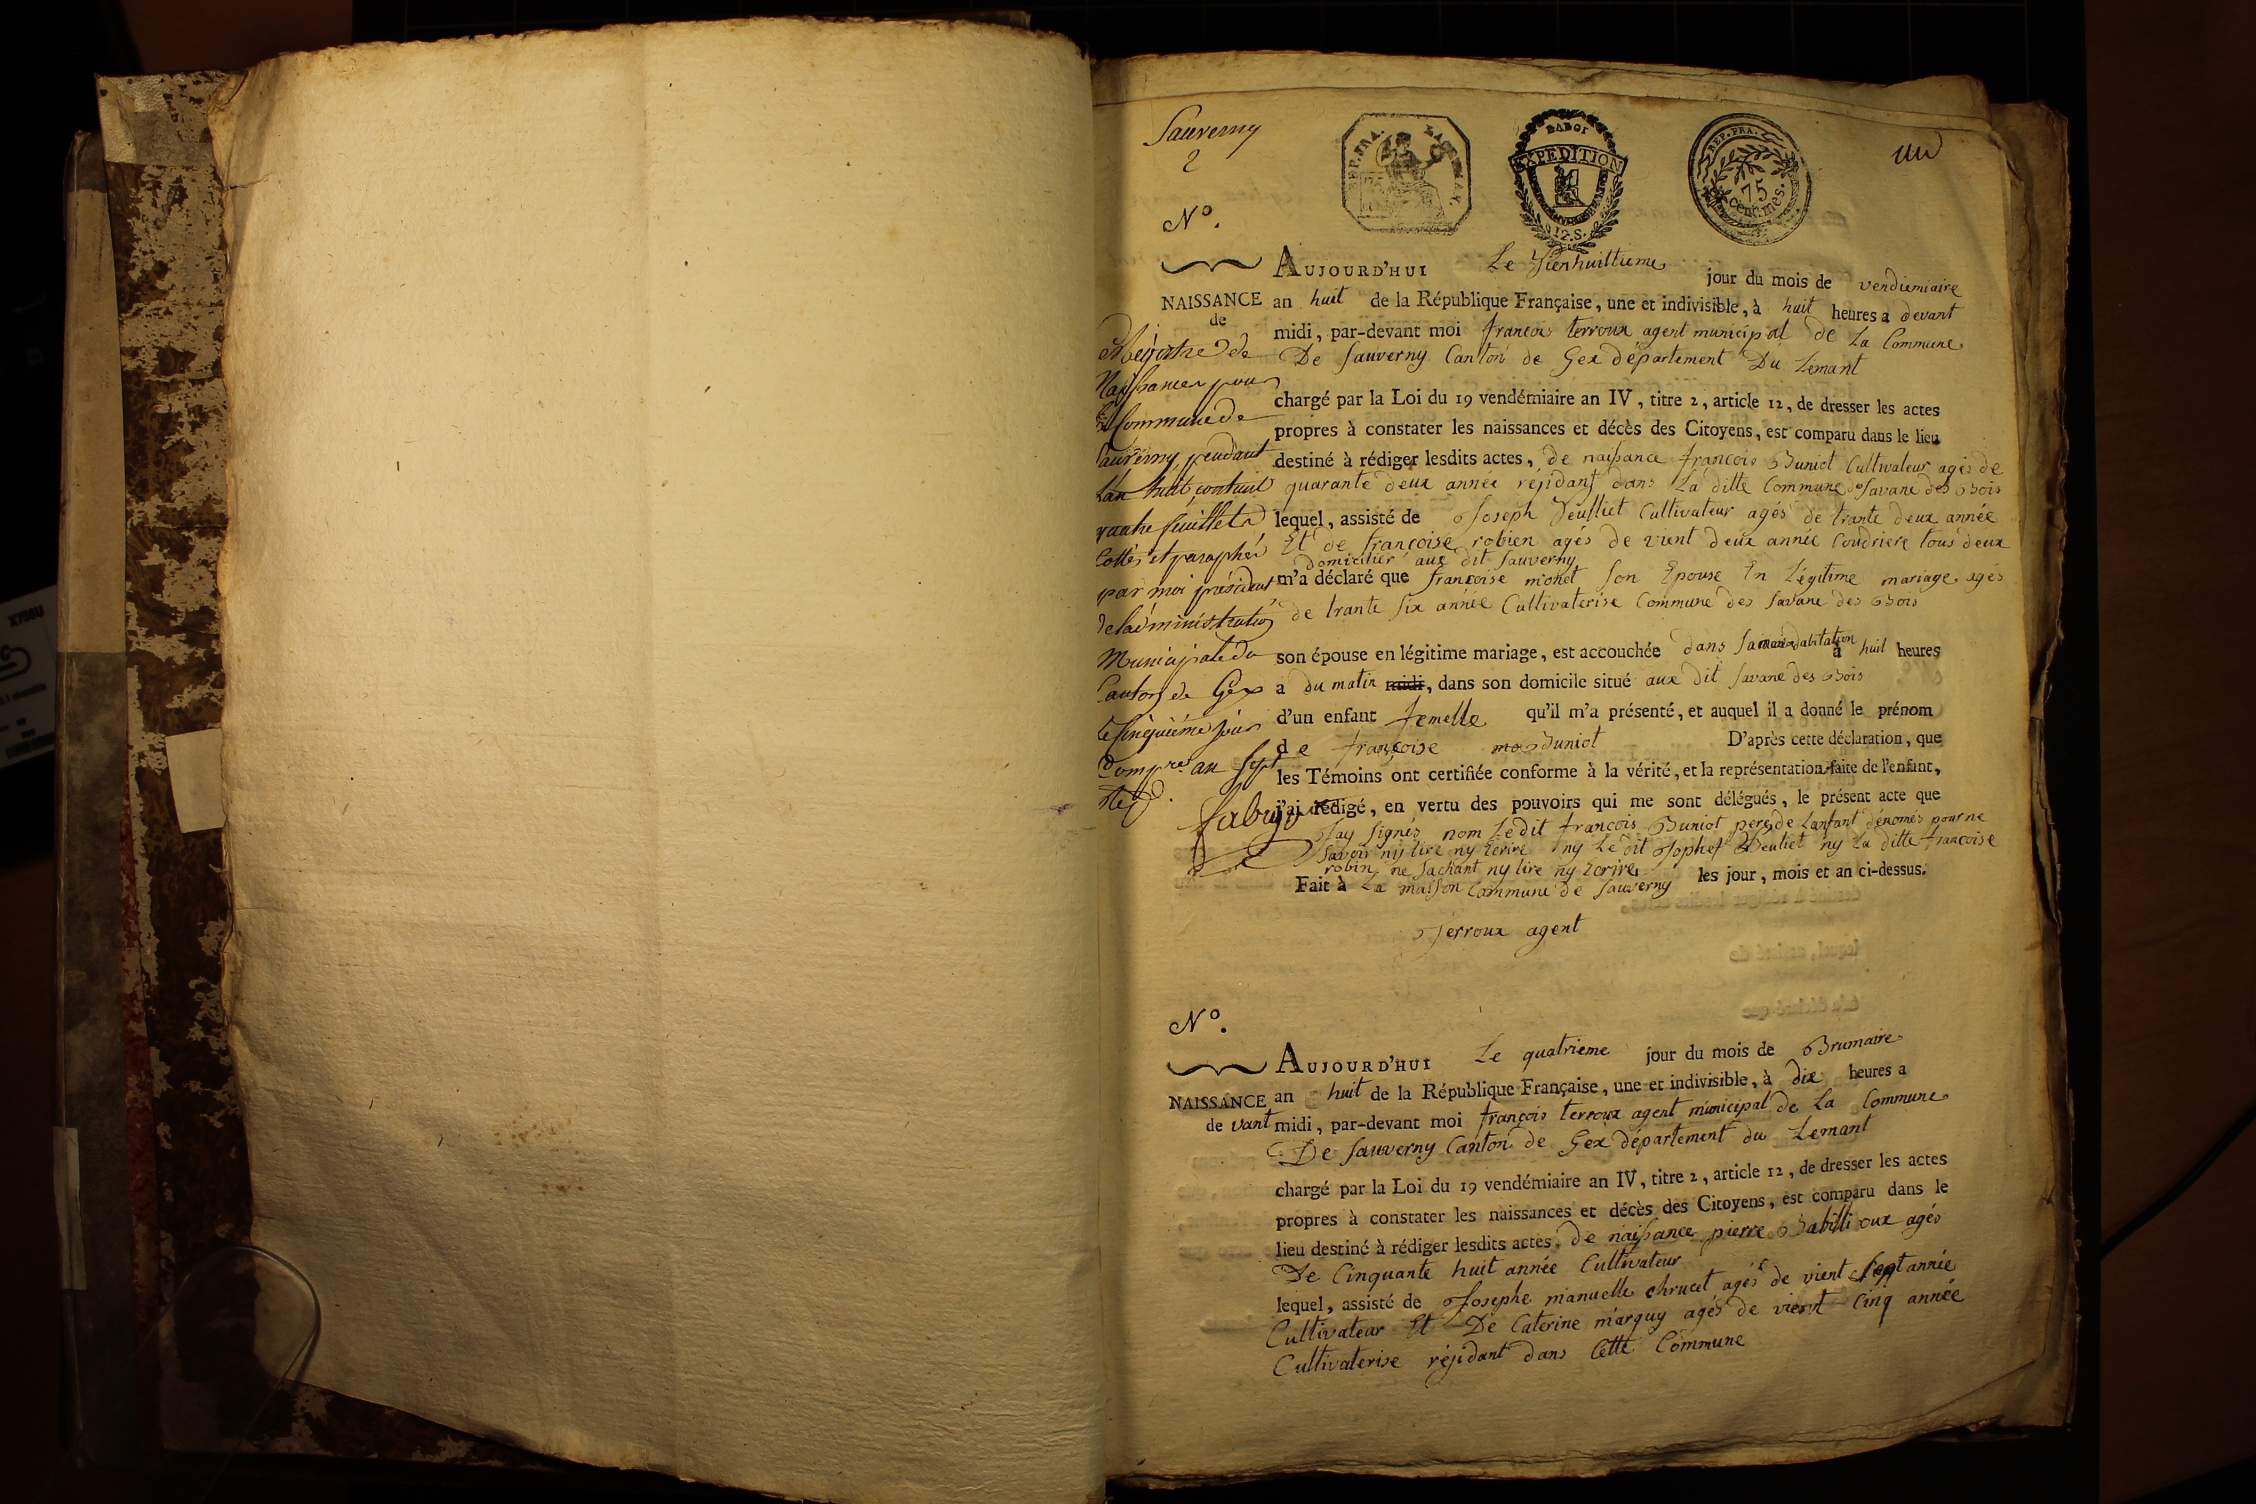 Sauverny
2
un
REP. FRA.
BABOI
EXPEDITION
12.S.
REP. FRA.
75
centimes.
N°.
AUJOURD'HUI Le vienhuittieme jour du mois de vendiemiaire
NAISSANCE
de
an huit de la République Française, une et indivisible, à huit heures a devant
midi, par-devant moi francois terroux agent municipal de La Commune
De Sauverny Canton de Gex département Du Lemant
chargé par la Loi du 19 vendémiaire an IV, titre 2, article 12, de dresser les actes
propres à constater les naissances et décès des Citoyens, est comparu dans le lieu
destiné à rédiger lesdits actes, de naissance francois Buniot Cultivateur agés de
quarante deux année rejidant dans La ditte Commune de Savane des Bois
lequel, assisté de Joseph Deulliet Cultivateur agés de trante deux année
Et de francoise robien agés de vient deux année Coudriere tous deux
domicilier aux dit Sauverny
m'a déclaré que francoise monet son Epouse En Légitime mariage agés
de trante six année Cultivaterise Commune des Savane des Bois
son épouse en légitime mariage, est accouchée dans Sa dabitation à huit heures
a du matin midi, dans son domicile situé aux dit Savane des Bois
d'un enfant femelle qu'il m'a présenté, et auquel il a donné le prénom
de françoise Buniot D'après cette déclaration, que
les Témoins ont certifiée conforme à la vérité, et la représentation faite de l'enfant,
j'ai rédigé, en vertu des pouvoirs qui me sont délégués, le présent acte que
Jay signés nom Ledit françois Buniot pere de Lanfant dénomés pour ne
Savoir ny lire ny Ecrire ny Le dit Jophef Deuliet ny La ditte francoise
robin ne sachant ny lire ny Ecrire
Fait à La maison Commune de Sauverny les jour, mois et an ci-dessus.
Terroux agent
Registre de
Naissances pour
la Commune de
Sauverny pendant
l'an huit contenant
quatre feuillets
Cottés et paraphés
par moi président
de l'administration
Municipale du
Canton de Gex
le cinquième jour
Comp.re an Sept
Rep.
fabry
N°.
AUJOURD'HUI Le quatrieme jour du mois de Brumaire
NAISSANCE
de vant
an huit de la République Française, une et indivisible, à dix heures a
midi, par-devant moi françois terroux agent municipal de La Commune
De Sauverny Canton de Gex département du Lemant
chargé par la Loi du 19 vendémiaire an IV, titre 2, article 12, de dresser les actes
propres à constater les naissances et décès des Citoyens, est comparu dans le
lieu destiné à rédiger lesdits actes, de naissance pierre Babilli oux agés
De Cinquante huit année Cultivateur
lequel, assisté de Josephe manuelle chruat agés de vient sept année
Cultivateur Et De Caterine marquy agés de vient Cinq année
Cultivaterise réjidant dans Cette Commune